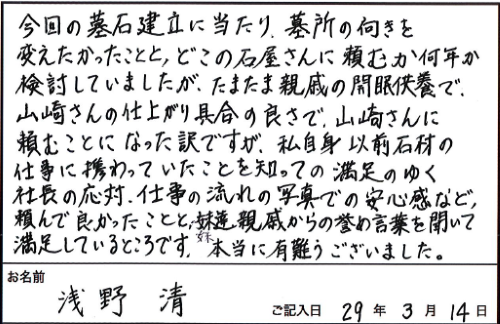 今回の墓石建立に当たり、墓所の向きを
変えたかったことと、どこの石屋さんに頼むか何年か
検討していましたが、たまたま親戚の開眼供養で、
山崎さんの仕上がり具合の良さで、山崎さんに
頼むことになった訳ですが、私自身以前石材の
仕事に携わっていたことを知っての満足のゆく
社長の応対、仕事の流れの写真での安心感など、
頼んで良かったことと、妹達、親戚からの誉め言葉を聞いて
満足しているところです。本当に有難うございました。
妹
お名前
浅野 清
ご記入日 29年 3月 14日